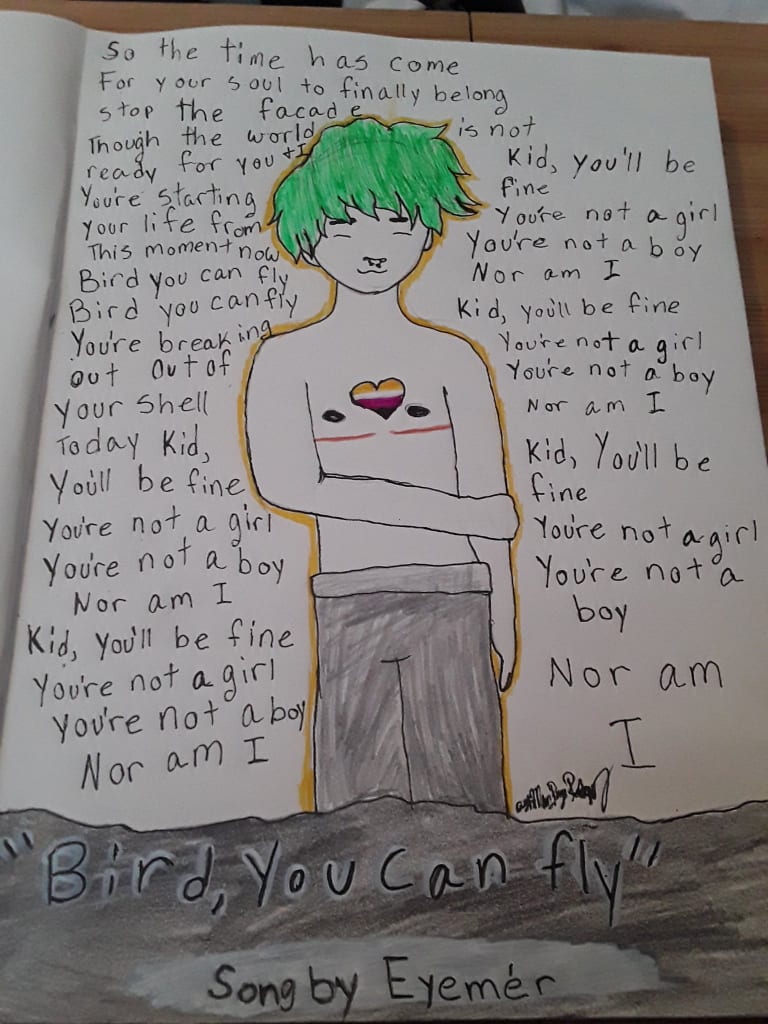 So the time has come
For your soul to finally belong
stop the facade
Though the world is not
ready for you + I
You're starting
your life from
This moment now
Bird you can fly
Bird you can fly
You're breaking
out out of
your shell
Today Kid,
You'll be fine
You're not a girl
You're not a boy
Nor am I
Kid, you'll be fine
You're not a girl
You're not a boy
Nor am I
Kid, you'll be
fine
You're not a girl
You're not a boy
Nor am I
Kid, you'll be fine
You're not a girl
You're not a boy
Nor am I
Kid, You'll be
fine
You're not a girl
You're not a
boy
Nor am
I
"Bird, You Can fly"
Song by Eyemér